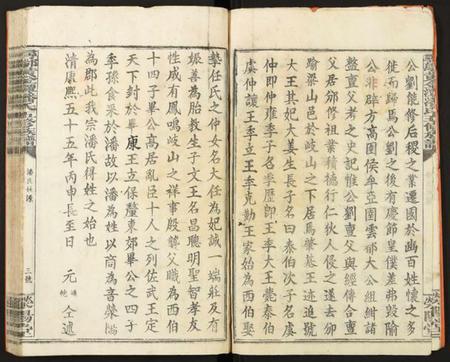 公劉能修后稷之業遷國於豳百姓懷之多
徙而歸焉公劉之後有慶節皇僕差弗毀隃
公非辟方高圉侯牟亞圉雲都大公組紺諸
盩亶父考之史記惟公劉亶父與經傳合亶
父居豳修祖業積德行仁狄人侵之遂去豳
踰梁山邑於岐山之下居焉肇基王迹追號
大王其妃大姜生長子名曰泰伯次子名虞
仲即仲雍季子名季歷即王季大王薨泰伯
虞仲讓王季立王季克勤王家始為西伯娶
摯任氏之仲女名大任為妃誠一端莊及有
娠善為胎教生子文王名昌聰明聖智孝友
性成有鳳鳴岐山之祥事殷躋父職為西伯
十四子畢公高居亂臣十人之列佐武王定
天下封於畢康王立保釐東郊畢公之四子
季孫食采於潘故以潘為姓以商為音滎陽
為郡此我宗潘氏得姓之始也
清康熙五十五年丙申長至日 元 仝述
潘氏
三號